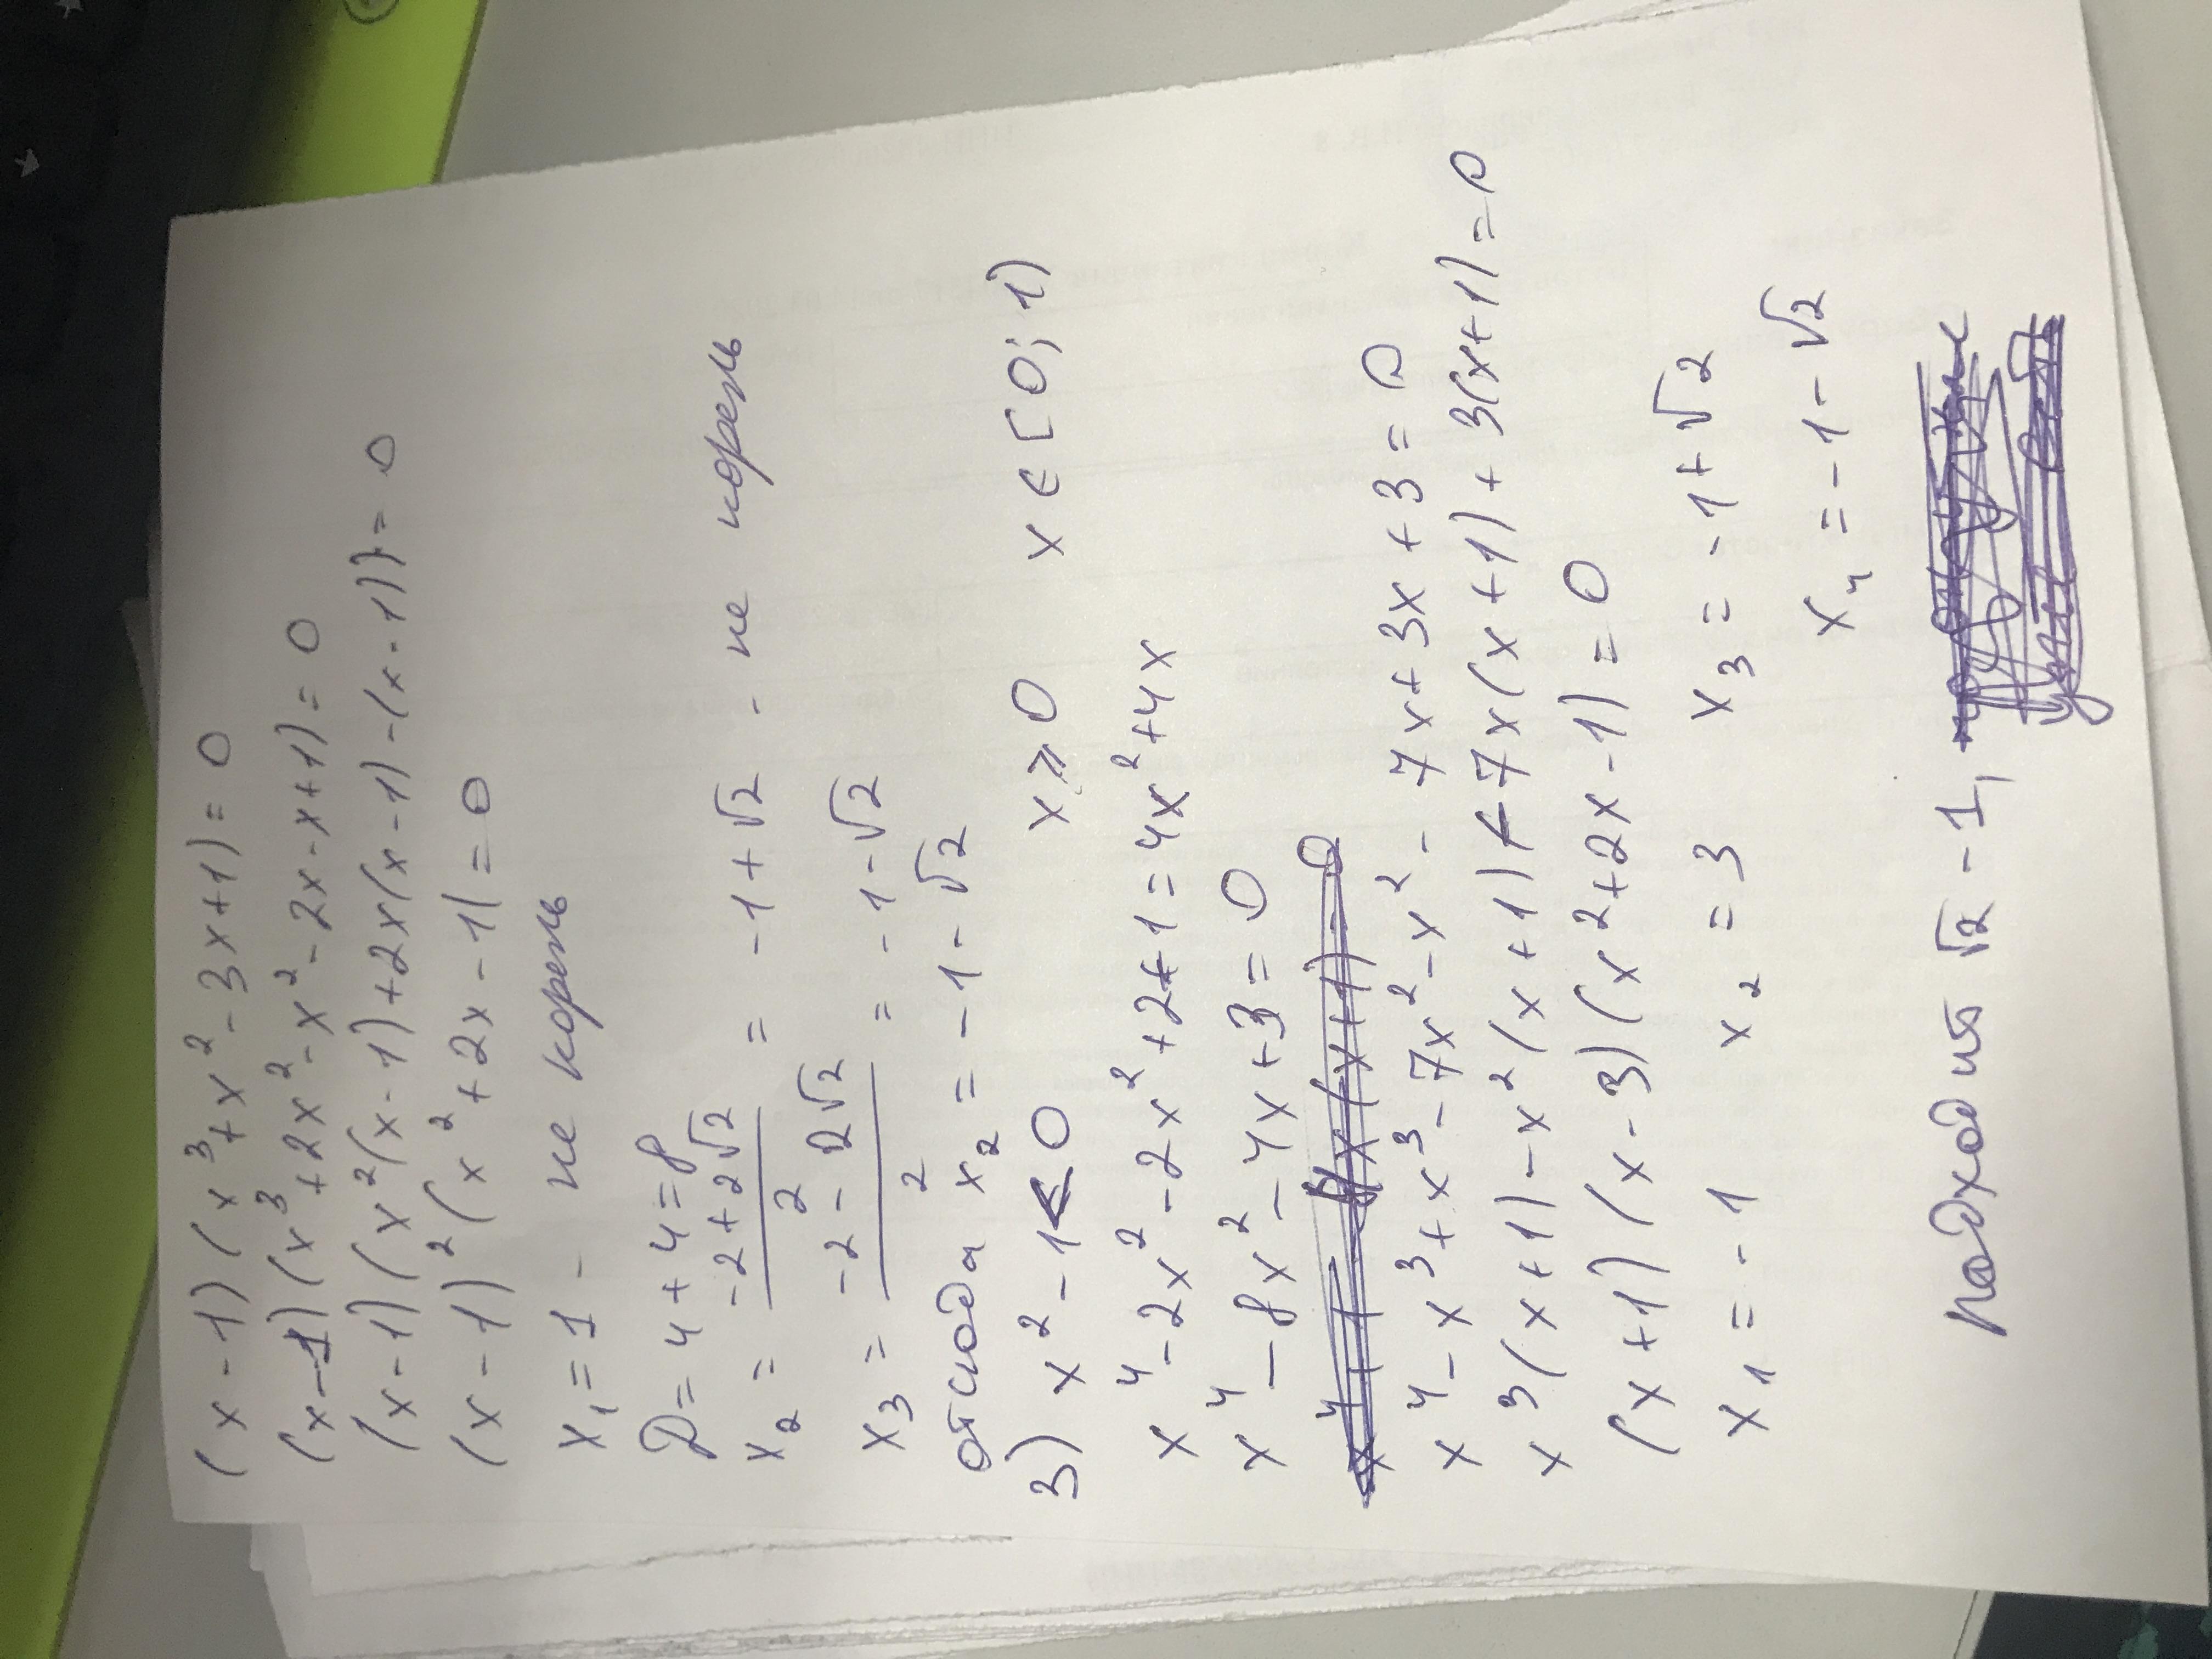 (x-1)(x³+x²-3x+1)=0
(x-1)(x³+2x²-x²-2x-x+1)=0
(x-1)(x²(x-1)+2x(x-1)-(x-1))=0
(x-1)²(x²+2x-1)=0
x₁=1 - не корень
D=4+4=8
x₂ = (-2+2√2)/2 = -1+√2 - не корень
x₃ = (-2-2√2)/2 = -1-√2
отсюда x₂ = -1-√2
3) x²-1<0 x≥0 x∈[0;1)
x⁴-2x²-2x²+2+1=4x²+4x
x⁴-8x²-4x+3=0
x⁴-x³+x³-7x²-x²-7x+3x+3=0
x³(x+1)-x²(x+1)-7x(x+1)+3(x+1)=0
(x+1)(x-3)(x²+2x-1)=0
x₁=-1 x₂=3 x₃=-1+√2
x₄=-1-√2
подходит √2-1,